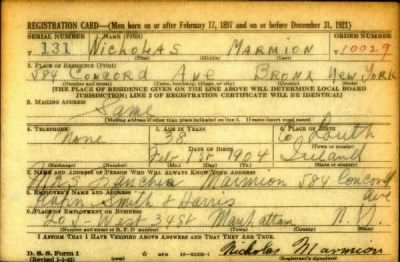 REGISTRATION CARD—(Men born on or after February 17, 1897 and on or before December 31, 1921)
SERIAL NUMBER 1. NAME (Print) ORDER NUMBER
T 131 NICHOLAS MARMION 10029
(First) (Middle) (Last)
2. PLACE OF RESIDENCE (Print)
584 CONCORD AVE BRONX NEW YORK
(Number and street) (Town, township, village, or city) (County) (State)
[THE PLACE OF RESIDENCE GIVEN ON THE LINE ABOVE WILL DETERMINE LOCAL BOARD
JURISDICTION; LINE 2 OF REGISTRATION CERTIFICATE WILL BE IDENTICAL]
3. MAILING ADDRESS
Same
[Mailing address if other than place indicated on line 2. If same insert word same]
4. TELEPHONE 5. AGE IN YEARS 6. PLACE OF BIRTH
None 38 Co Louth
DATE OF BIRTH (Town or county)
Feb 1st 1904 Ireland
(Exchange) (Number) (Mo.) (Day) (Yr.) (State or country)
7. NAME AND ADDRESS OF PERSON WHO WILL ALWAYS KNOW YOUR ADDRESS
Marmion 584 Concord Ave
8. EMPLOYER'S NAME AND ADDRESS
Smith & Harris
9. PLACE OF EMPLOYMENT OR BUSINESS
West 34 St Manhattan N.Y.
(Number and street or R. F. D. number) (Town) (County) (State)
I AFFIRM THAT I HAVE VERIFIED ABOVE ANSWERS AND THAT THEY ARE TRUE.
D. S. S. Form 1
Nicholas Marmion
(Registrant's signature)